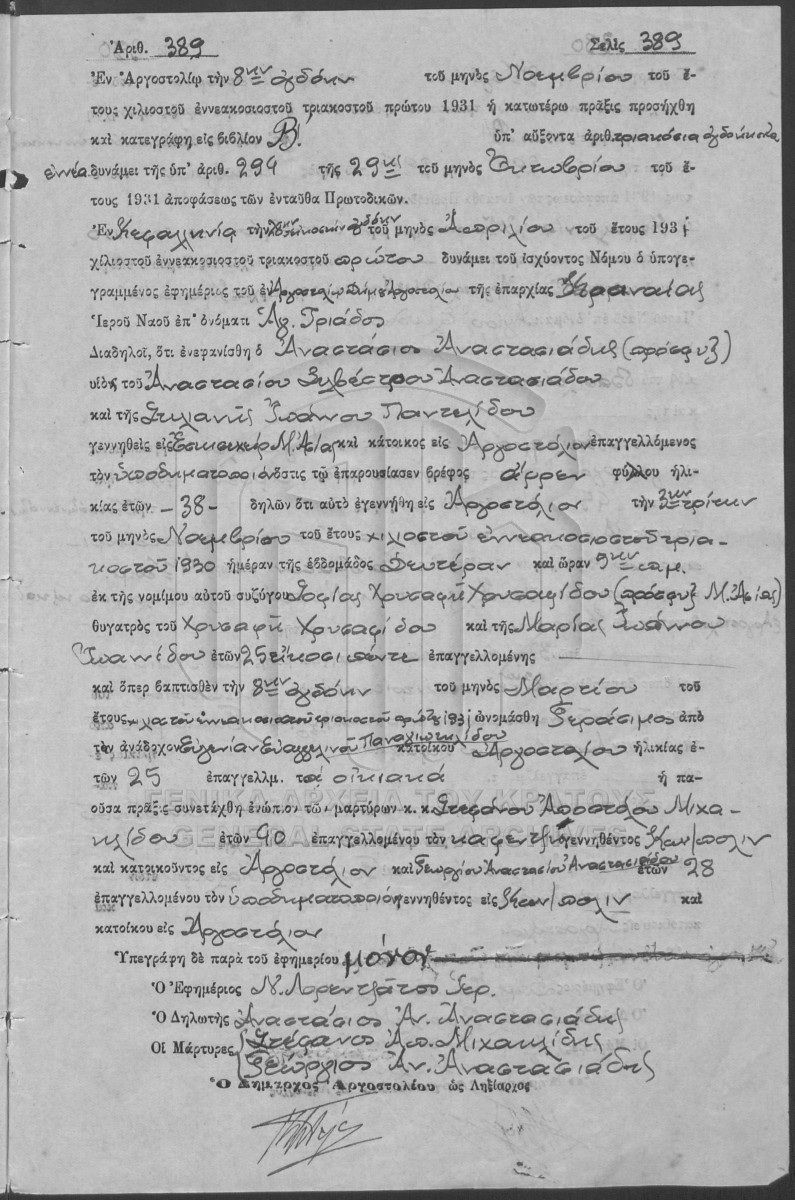 Ἀριθ. 389 Σελὶς 389
Ἐν Ἀργοστολίῳ τὴν 8ην ὀγδόην τοῦ μηνὸς Νοεμβρίου τοῦ ἔ-
τους χιλιοστοῦ ἐννεακοσιοστοῦ τριακοστοῦ πρώτου 1931 ἡ κατωτέρω πρᾶξις προσήχθη
καὶ κατεγράφη εἰς βιβλίον Β! ὑπ' αὔξοντα ἀριθ. τριακόσια ὀγδοήκοντα
ἐννέα δυνάμει τῆς ὑπ' ἀριθ. 294 τῆς 29ης τοῦ μηνὸς Ὀκτωβρίου τοῦ ἔ-
τους 1931 ἀποφάσεως τῶν ἐνταῦθα Πρωτοδικῶν.
Ἐν Κεφαλληνίᾳ τὴν ὀγδόην τοῦ μηνὸς Ἀπριλίου τοῦ ἔτους 1931
χιλιοστοῦ ἐννεακοσιοστοῦ τριακοστοῦ πρώτου δυνάμει τοῦ ἰσχύοντος Νόμου ὁ ὑπογε-
γραμμένος ἐφημέριος τοῦ ἐν Ἀργοστολίῳ Δήμου Ἀργοστολίου τῆς ἐπαρχίας Κραναίας
Ἱεροῦ Ναοῦ ἐπ' ὀνόματι Ἁγ. Τριάδος
Διαδηλοῖ, ὅτι ἐνεφανίσθη ὁ Ἀναστάσιος Ἀναστασιάδης (πρόσφυξ)
υἱὸς τοῦ Ἀναστασίου Συλβέστρου Ἀναστασιάδου
καὶ τῆς Στυλιανῆς Ἰωάννου Παντελίδου
γεννηθεὶς εἰς Ἐσκισεχὶρ Μ. Ἀσίας καὶ κάτοικος εἰς Ἀργοστόλιον ἐπαγγελλόμενος
τὸν ὑποδηματοποιὸν ὅστις τῷ ἐπαρουσίασεν βρέφος ἄρρεν φύλλου ἡλι-
κίας ἐτῶν -38- δηλῶν ὅτι αὐτὸ ἐγεννήθη εἰς Ἀργοστόλιον τὴν 3ην τρίτην
τοῦ μηνὸς Νοεμβρίου τοῦ ἔτους χιλιοστοῦ ἐννεακοσιοστοῦ τρια-
κοστοῦ 1930 ἡμέραν τῆς ἑβδομάδος Δευτέραν καὶ ὥραν 5ην π.μ.
ἐκ τῆς νομίμου αὐτοῦ συζύγου Σοφίας Χρυσαφῆ Χρυσαφίδου (πρόσφυξ Μ. Ἀσίας)
θυγατρὸς τοῦ Χρυσαφῆ Χρυσαφίδου καὶ τῆς Μαρίας Ἰωάννου
Ἰωανίδου ἐτῶν 25 εἴκοσι πέντε ἐπαγγελλομένης
καὶ ὅπερ βαπτισθὲν τὴν 8ην ὀγδόην τοῦ μηνὸς Μαρτίου τοῦ
ἔτους χιλιοστοῦ ἐννεακοσιοστοῦ τριακοστοῦ πρώτου 1931 ὠνομάσθη Γεράσιμος ἀπὸ
τὸν ἀνάδοχον Εὐγενίαν Εὐαγγελινοῦ Παναγιωτελίδου κατοίκου Ἀργοστολίου ἡλικίας ἐ-
τῶν 25 ἐπαγγελλμ. τὰ οἰκιακὰ ἡ πα-
ροῦσα πρᾶξις συνετάχθη ἐνώπιον τῶν μαρτύρων κ. κ. Στεφάνου Ἀποστόλου Μιχα-
ηλίδου ἐτῶν 40 ἐπαγγελλομένου τὸν καφεντζῆ γεννηθέντος Κων/πολιν
καὶ κατοικοῦντος εἰς Ἀργοστόλιον καὶ Γεωργίου Ἀναστασίου Ἀναστασιάδου ἐτῶν 28
ἐπαγγελλομένου τὸν ὑποδηματοποιὸν γεννηθέντος εἰς Κων/πολιν καὶ
κατοίκου εἰς Ἀργοστόλιον
Ὑπεγράφη δὲ παρὰ τοῦ ἐφημερίου μόνον
Ὁ Ἐφημέριος Ν. Λορεντζᾶτος Ἱερ.
Ὁ Δηλωτὴς Ἀναστάσιος Ἀν. Ἀναστασιάδης
Οἱ Μάρτυρες Στέφανος Ἀπ. Μιχαηλίδης
Γεώργιος Ἀν. Ἀναστασιάδης
Ὁ Δήμαρχος Ἀργοστολίου ὡς Ληξίαρχος
ΓΕΝΙΚΑ ΑΡΧΕΙΑ ΤΟΥ ΚΡΑΤΟΥΣ
GENERAL STATE ARCHIVES